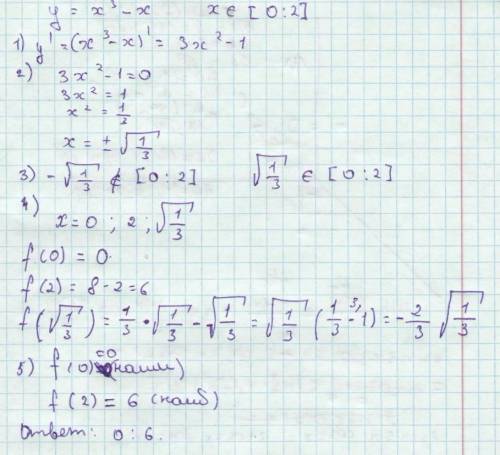 y = x³ - x x ∈ [0:2]
1) y' = (x³ - x)' = 3x² - 1
2) 3x² - 1 = 0
3x² = 1
x² = 1/3
x = ± √(1/3)
3) - √(1/3) ∉ [0:2] √(1/3) ∈ [0:2]
4)
x = 0 ; 2 ; √(1/3)
f(0) = 0.
f(2) = 8 - 2 = 6
f(√(1/3)) = 1/3 • √(1/3) - √(1/3) = √(1/3) (1/3 - 1³⁾) = - 2/3 √(1/3)
5) f(0) =0 (наим)
f(2) = 6 (наиб)
Ответ: 0 : 6.